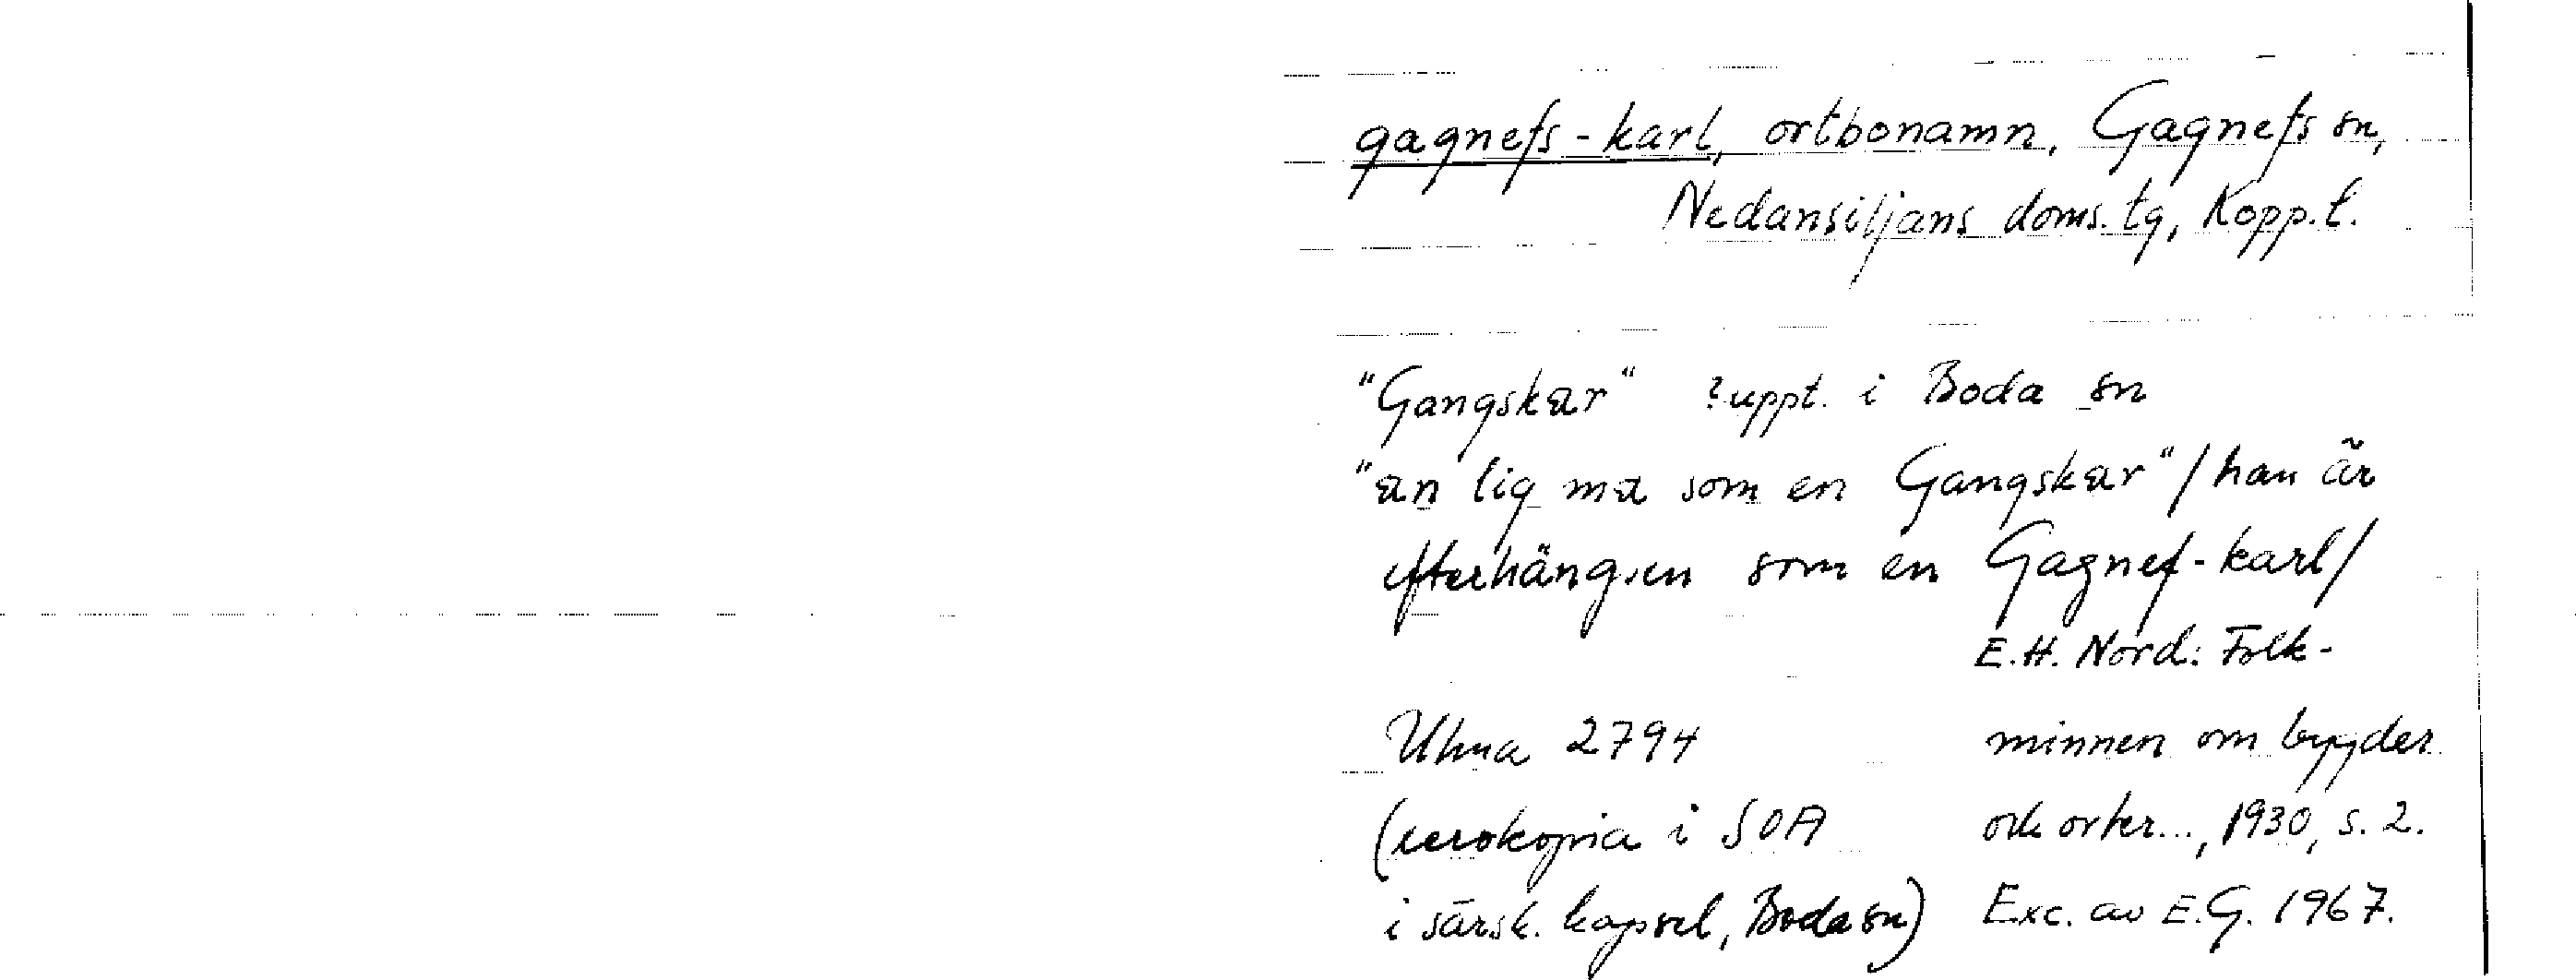 gagnefs-karl, ortbonamn, Gagnefs sn,
Nedansiljans doms.tg, Kopp.l.
"Gangskær" ?uppt. i Boda sn
"æn lig mæ som en Gangskær" / han är
efterhängsen som en Gagnef-karl/
E.H. Nord: Folk-
Ulma 2794 minnen om bygder
(xerokopia i SOA och orter..., 1930, s. 2.
i särsk. kapsel, Boda sn) Exc. av E.G. 1967.